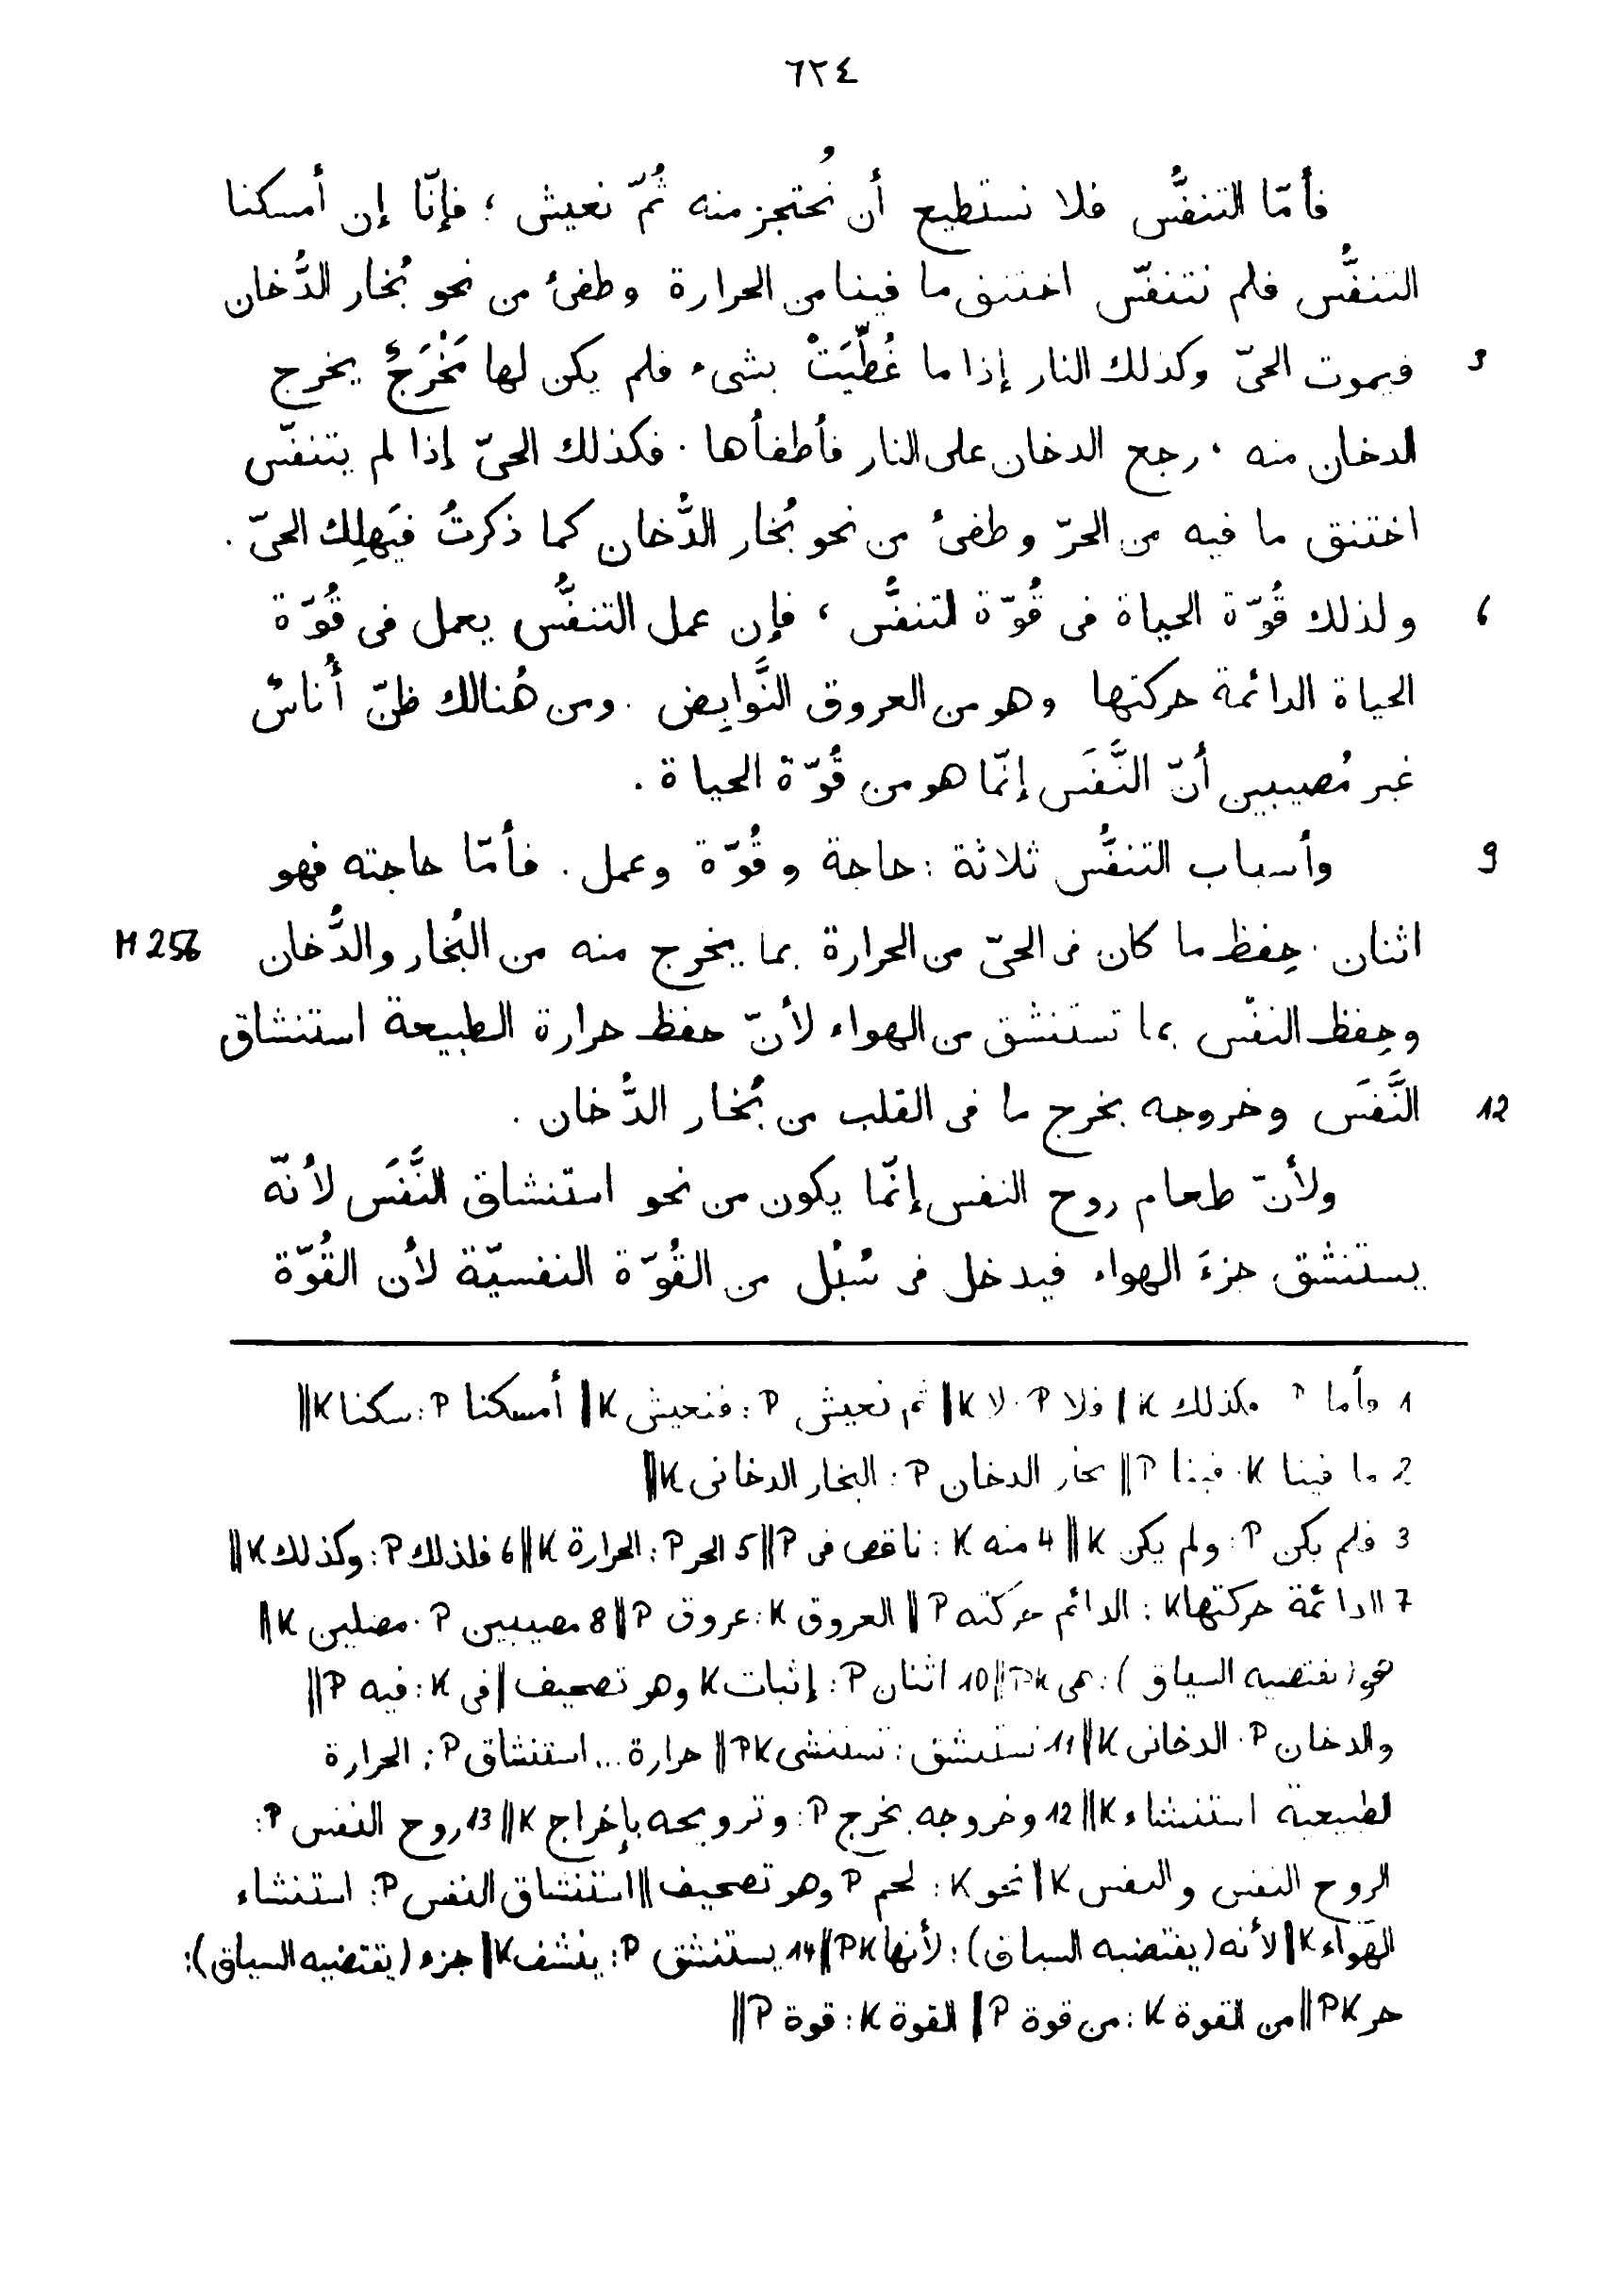 ٦٢٤
فأمّا التنفُّس فلا نستطيع أن نُحتجز منه ثُمّ نعيش ؛ فإنّا إن أمسكنا
التنفُّس فلم نتنفّس اختنق ما فينا من الحرارة وطفئ من نحو بُخار الدُّخان
3 فيموت الحىّ وكذلك النار إذا ما غُطِّيَتْ بشىء فلم يكن لها مَخْرَجٌ يخرج
الدخان منه ، رجع الدخان على النار فأطفأها . فكذلك الحىّ إذا لم يتنفّس
اختنق ما فيه من الحرّ وطفئ من نحو بُخار الدُّخان كما ذكرتُ فيَهلِك الحىّ .
6 ولذلك قُوّة الحياة فى قُوّة التنفُّس ، فإن عمل التنفُّس يعمل فى قُوّة
الحياة الدائمة حركتها وهو من العروق النَّوابِض . ومن هُنالك ظنّ أُناسٌ
غير مُصيبين أنّ النَّفَس إنّما هو من قُوّة الحياة .
9 وأسباب التنفُّس ثلاثة : حاجة وقُوّة وعمل . فأمّا حاجته فهو
اثنان . حِفظ ما كان فى الحىّ من الحرارة بما يخرج منه من البُخار والدُّخان H 256
وحِفظ النفْس بما تستنشق من الهواء لأنّ حفظ حرارة الطبيعة استنشاق
12 النَّفَس وخروجه يخرج ما فى القلب من بُخار الدُّخان .
ولأنّ طعام روح النفس إنّما يكون من نحو استنشاق النَّفَس لأنّه
يستنشق جزءَ الهواء فيدخل فى سُبُل من القُوّة النفسيّة لأن القُوّة
1 فأما P فكذلك K || فلا P . لا K || ثم نعيش P : فنعيش K || أمسكنا P : سكنا K ||
2 ما فينا K . فينا P || بخار الدخان P : البخار الدخانى K ||
3 فلم يكن P : ولم يكن K || 4 منه K : ناقص فى P || 5 الحر P : الحرارة K || 6 فلذلك P : وكذلك K ||
7 الدائمة حركتها K : الدائم حركته P || العروق K : عروق P || 8 مصيبين P . مضلين K ||
هو (يقتضيه السياق) : هى PK || 10 اثنان P : إثبات K وهو تصحيف || فى K : فيه P ||
والدخان P . الدخانى K || 11 تستنشق : تستنشى PK || حرارة ... استنشاق P : الحرارة
لطبيعية استنشاء K || 12 وخروجه يخرج P : وترويحه بإخراج K || 13 روح النفس P :
الروح النفس والنفس K || نحو K : لحم P وهو تصحيف || استنشاق النفس P : استنشاء
الهواء K || لأنه (يقتضيه السياق) : لأنها PK || 14 يستنشق P : ينشف K || جزء (يقتضيه السياق) :
حر PK || من القوة K : من قوة P || القوة K : قوة P ||